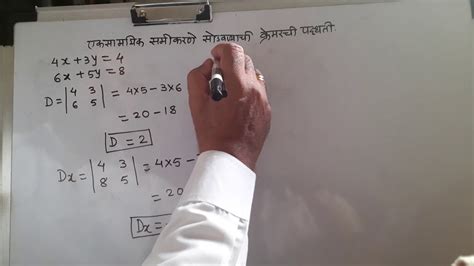 एकसामायिक समीकरणे सोडवण्याची क्रेमरची पद्धती
4x + 3y = 4
6x + 5y = 8
D = | 4 3 | = 4×5 - 3×6
| 6 5 |
= 20 - 18
D = 2
Dx = | 4 3 | = 4×5 -
| 8 5 |
= 20
Dx =